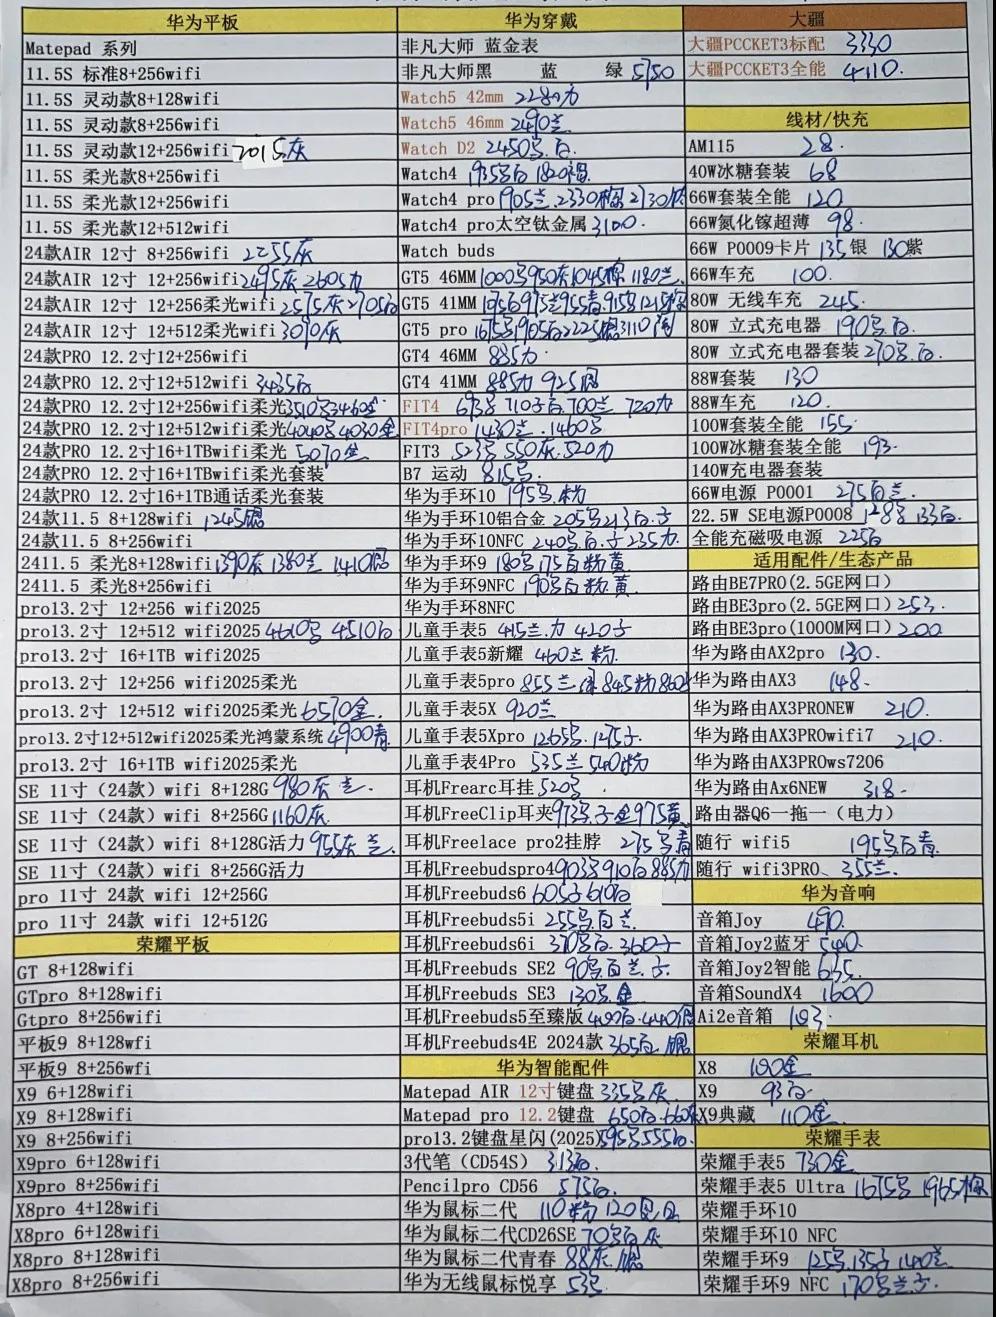 华为平板
Matepad 系列
11.5S 标准8+256wifi
11.5S 灵动款8+128wifi
11.5S 灵动款8+256wifi
11.5S 灵动款12+256wifi 2015灰
11.5S 柔光款8+256wifi
11.5S 柔光款12+256wifi
11.5S 柔光款12+512wifi
24款AIR 12寸 8+256wifi 2255灰
24款AIR 12寸 12+256wifi 2495灰 2605力
24款AIR 12寸 12+256柔光wifi 2575灰 2705白
24款AIR 12寸 12+512柔光wifi 3070灰
24款PRO 12.2寸12+256wifi
24款PRO 12.2寸12+512wifi 3435白
24款PRO 12.2寸12+256wifi柔光 3510号3460金
24款PRO 12.2寸12+512wifi柔光 4040号4030金
24款PRO 12.2寸16+1TBwifi柔光 5070金
24款PRO 12.2寸16+1TBwifi柔光套装
24款PRO 12.2寸16+1TB通话柔光套装
24款11.5 8+128wifi 1245
24款11.5 8+256wifi
2411.5 柔光8+128wifi 1390灰 1380兰 1410
2411.5 柔光8+256wifi
pro13.2寸 12+256 wifi2025
pro13.2寸 12+512 wifi2025 4610号 4510白
pro13.2寸 16+1TB wifi2025
pro13.2寸 12+256 wifi2025柔光
pro13.2寸 12+512 wifi2025柔光 6570金
pro13.2寸12+512wifi2025柔光鸿蒙系统 4900青
pro13.2寸 16+1TB wifi2025柔光
SE 11寸（24款）wifi 8+128G 980灰 兰
SE 11寸（24款）wifi 8+256G 1160灰
SE 11寸（24款）wifi 8+128G活力 955灰 兰
SE 11寸（24款）wifi 8+256G活力
pro 11寸 24款 wifi 12+256G
pro 11寸 24款 wifi 12+512G
荣耀平板
GT 8+128wifi
GTpro 8+128wifi
Gtpro 8+256wifi
平板9 8+128wifi
平板9 8+256wfi
X9 6+128wifi
X9 8+128wifi
X9 8+256wifi
X9pro 6+128wifi
X9pro 8+256wifi
X8pro 4+128wifi
X8pro 6+128wifi
X8pro 8+128wifi
X8pro 8+256wifi
华为穿戴
非凡大师 蓝金表
非凡大师黑 蓝 绿 5750
Watch5 42mm 2280力
Watch5 46mm 2490兰
Watch D2 2450号.白
Watch4 1935号白 1820
Watch4 pro 1905兰 2330 2130
Watch4 pro太空钛金属 3100
Watch buds
GT5 46MM 1000号950灰1045棕 1180兰
GT5 41MM
GT5 pro
GT4 46MM 885力
GT4 41MM 885力 925
FIT4 693号 710子白 700兰 720力
FIT4pro 1430兰 1460号
FIT3 523号 550灰 520力
B7 运动 815号
华为手环10 195号.粉
华为手环10铝合金 205号213白.子
华为手环10NFC 240号白.子 235力
华为手环9 180号175白粉黄
华为手环9NFC 190号白粉黄
华为手环8NFC
儿童手表5 415兰.力 420子
儿童手表5新耀 460兰 粉
儿童手表5pro 855兰 845粉
儿童手表5X 920兰
儿童手表5Xpro 1265号.1275子
儿童手表4Pro 535兰 540粉
耳机Frearc耳挂 520号
耳机FreeClip耳夹 973号.子金975黄
耳机Freelace pro2挂脖 275号青
耳机Freebudspro4 903号910白885力
耳机Freebuds6 605子610白
耳机Freebuds5i 255号白兰
耳机Freebuds6i 370号白.360子
耳机Freebuds SE2 90号白兰.子
耳机Freebuds SE3 130号.金
耳机Freebuds5至臻版 440
耳机Freebuds4E 2024款 365白
华为智能配件
Matepad AIR 12寸键盘 335号灰
Matepad pro 12.2键盘 650白.660灰
pro13.2键盘星闪(2025) 595号555白
3代笔（CD54S） 313白
Pencilpro CD56 575白
华为鼠标二代 110粉 120
华为鼠标二代CD26SE 70号白灰
华为鼠标二代青春 88灰
华为无线鼠标悦享 53号
大疆
大疆PCCKET3标配 3330
大疆PCCKET3全能 4110.
线材/快充
AM115 28.
40W冰糖套装 68
66W套装全能 120
66W氮化镓超薄 98.
66W P0009卡片 135银 130紫
66W车充 100.
80W 无线车充 245.
80W 立式充电器 190号.白.
80W 立式充电器套装 270号.白.
88W套装 130
88W车充 120.
100W套装全能 155.
100W冰糖套装全能 193.
140W充电器套装
66W电源 P0001 275白兰.
22.5W SE电源P0008 128号 133白.
全能充磁吸电源 225白
适用配件/生态产品
路由BE7PRO(2.5GE网口)
路由BE3pro(2.5GE网口) 253.
路由BE3pro(1000M网口) 200
华为路由AX2pro 130.
华为路由AX3 148.
华为路由AX3PRONEW 210.
华为路由AX3PROwifi7 210.
华为路由AX3PROws7206
华为路由Ax6NEW 318.
路由器Q6一拖一（电力）
随行 wifi5 195号白青.
随行 wifi3PRO、 355兰.
华为音响
音箱Joy 490.
音箱Joy2蓝牙 540.
音箱Joy2智能 635.
音箱SoundX4 1600
Ai2e音箱 103
荣耀耳机
X8 100金
X9 93白
X9典藏 110金
荣耀手表
荣耀手表5 730金
荣耀手表5 Ultra 1675号 1965棕
荣耀手环10
荣耀手环10 NFC
荣耀手环9 125号.135子 140兰
荣耀手环9 NFC 170号兰子.